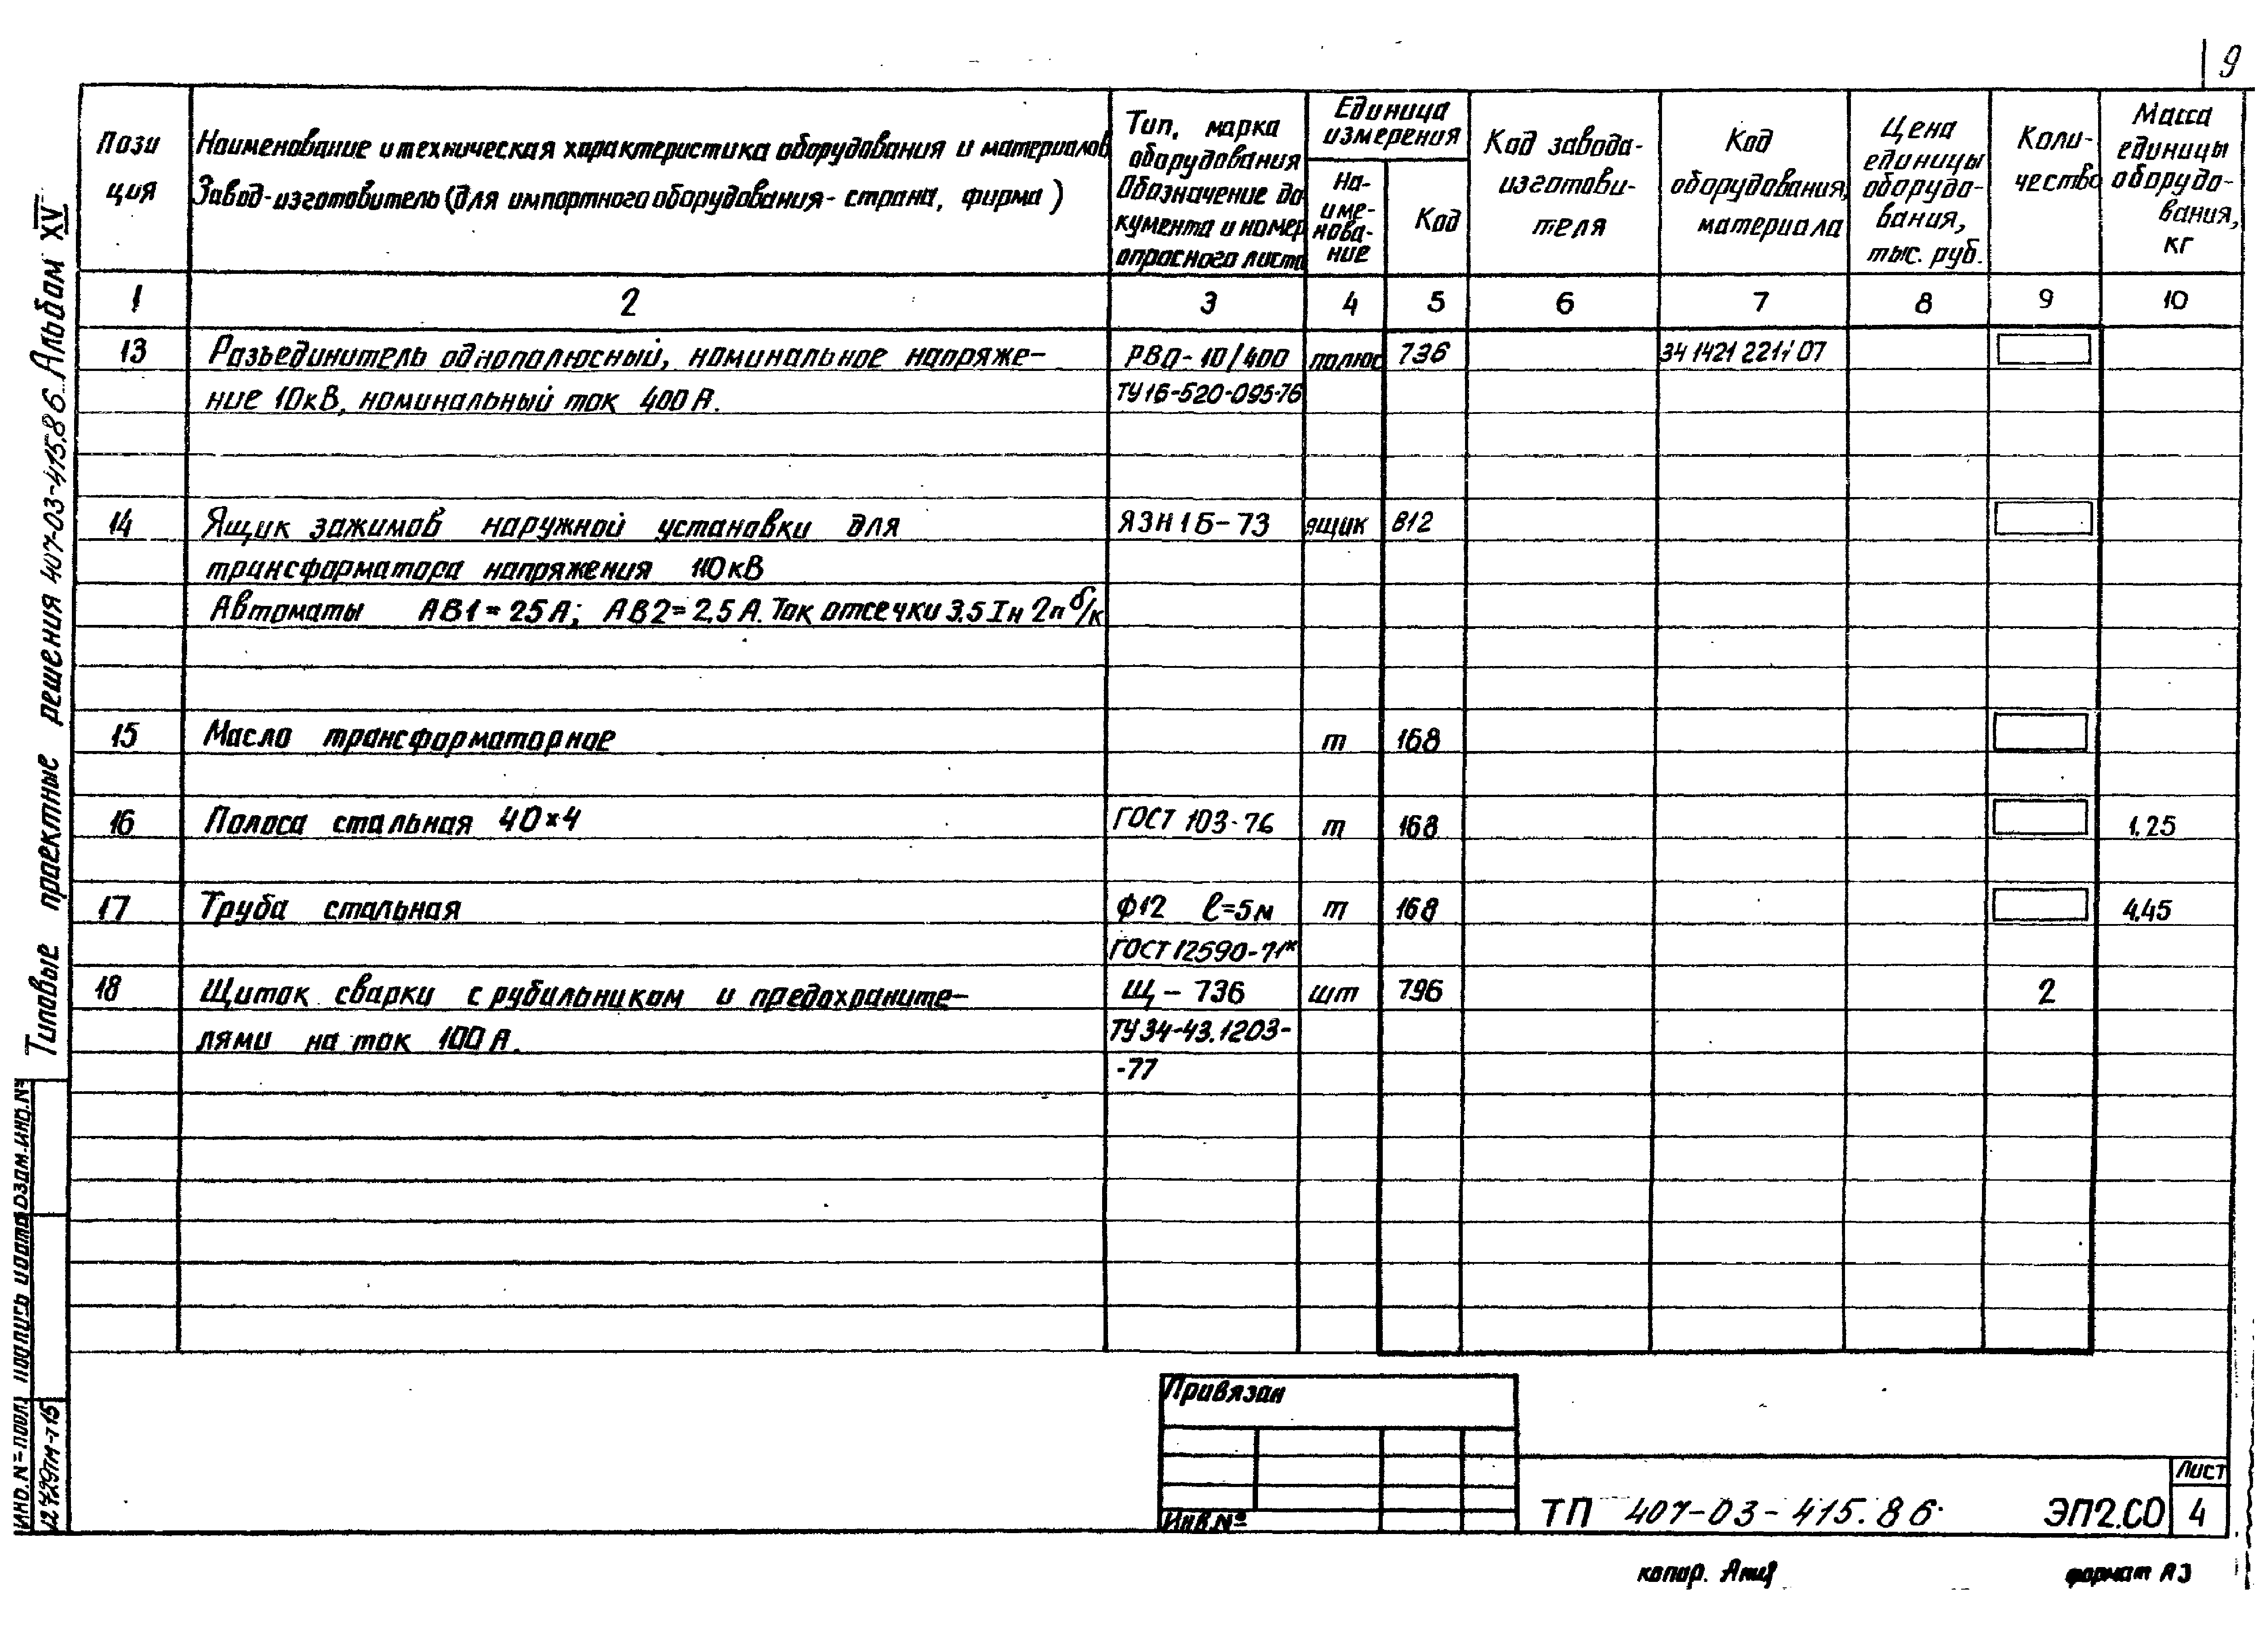 9
Пози
ция
Наименование и техническая характеристика оборудования и материалов
Завод-изготовитель (для импортного оборудования - страна, фирма)
Тип, марка
оборудования
Обозначение до
кумента и номер
опросного листа
Единица
измерения
На-
име-
нова-
ние
Код
Код завода-
изготови-
теля
Код
оборудования,
материала
Цена
единицы
оборудо-
вания,
тыс. руб.
Коли-
чество
Масса
единицы
оборудо-
вания,
кг
1 2 3 4 5 6 7 8 9 10
13 Разъединитель однополюсный, номинальное напряже- РВО-10/400 полюс 736 34 1421 2211 07
ние 10кВ, номинальный ток 400 А. ТУ16-520-095-76
14 Ящик зажимов наружной установки для ЯЗН1Б-73 ящик 812
трансформатора напряжения 110кВ
Автоматы АВ1=25А; АВ2=2,5А. Ток отсечки 3,5 Iн 2п б/к
15 Масло трансформаторное т 168
16 Полоса стальная 40×4 ГОСТ 103-76 т 168 1.25
17 Труба стальная ф12 l=5м т 168 4,45
ГОСТ 12590-71*
18 Щиток сварки с рубильником и предохраните- Щ-736 шт 796 2
лями на ток 100 А. ТУ34-43.1203-
-77
Типовые проектные решения 407-03-415.86. Альбом XV
Взам.инв.№
Подпись и дата
Инв.№ подл.
12729тм-т15
Привязан
Инв.№
ТП 407-03-415.86 ЭП2.СО
Лист
4
копир.
формат А3